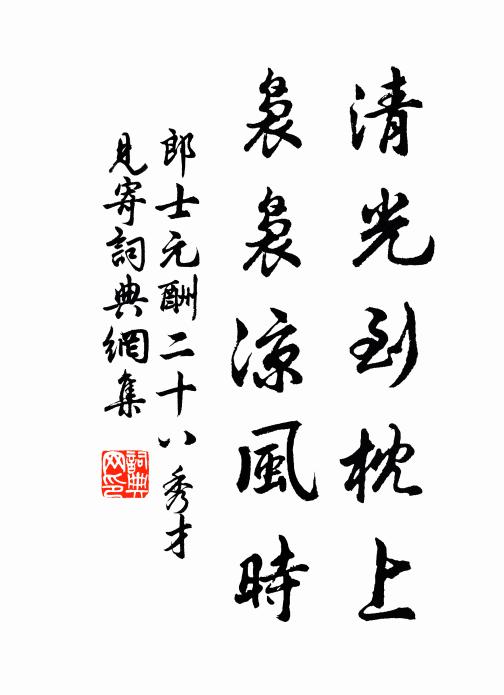 清光到枕上
裊裊涼風時
郎士元酬二十八秀才
見寄詞典網集
詞典網印